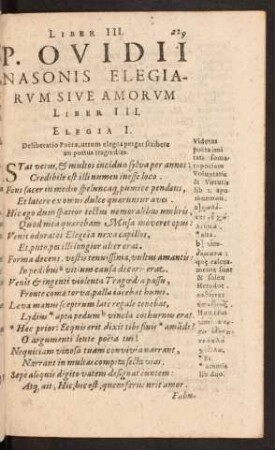 LIBER III. 219
P. OVIDII
NASONIS ELEGIA-
RVM SIVE AMORVM
LIBER III.
ELEGIA I.
Deliberatio Poëtæ, utrum elegos pergat scribere
an potius tragœdias.
STat vetus, & multos incidua sylva per annos:
Credibile est illi numen inesse loco.
Fons sacer in medio speluncaq́; pumice pendens,
Et latere ex omni dulce queruntur aves.
Hic ego dum spatior tectus nemoralibus umbris,
Quod mea quærebam Musa moveret opus:
Venit odoratos Elegeia nexa capillos,
Et puto pes illi longior alter erat.
Forma decens, vestis tenuissima, vultus amantis:
In pedibus vitium causa decoris erat.
Venit & ingenti violenta Tragœdia passu,
Fronte comæ torva, palla jacebat humi.
Læva manus sceptrum late regale tenebat,
Lydius apta pedum vincla cothurnus erat.
Hæc prior: Ecquis erit dixit tibi finis amãdi?
O argumenti lente poëta tui!
Nequitiam vinosa tuam convivia narrant,
Narrant in multas compita secta vias.
Sæpe aliquis digito vatem designat euntem:
Atq́; ait, Hic, hic est, quem ferus urit amor.
Fabu-
Videtur
poëta imi
tari
Voluptatis
& Virtutis
lib. 2.